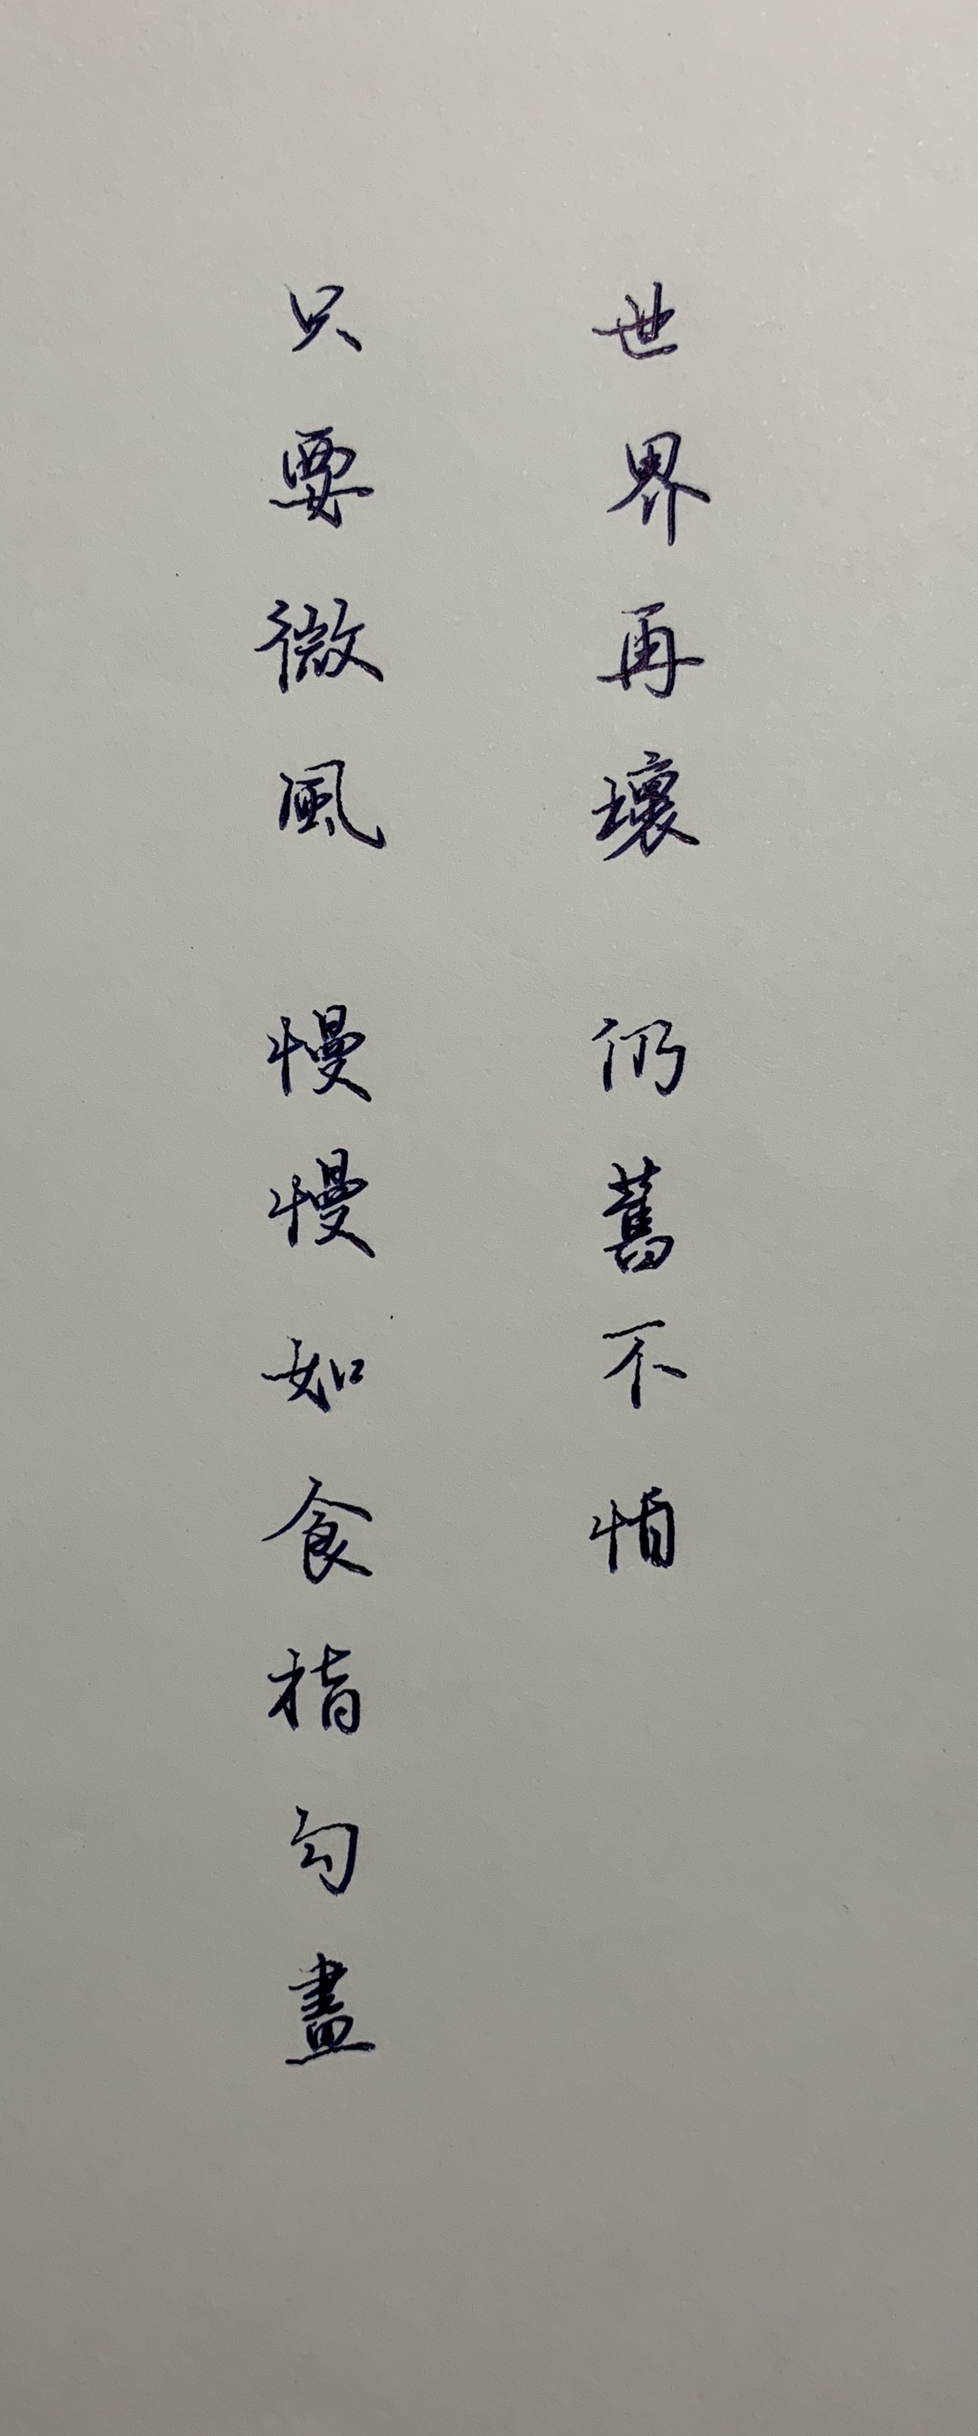 世界再壞 仍舊不怕
只要微風 慢慢如食指勾畫